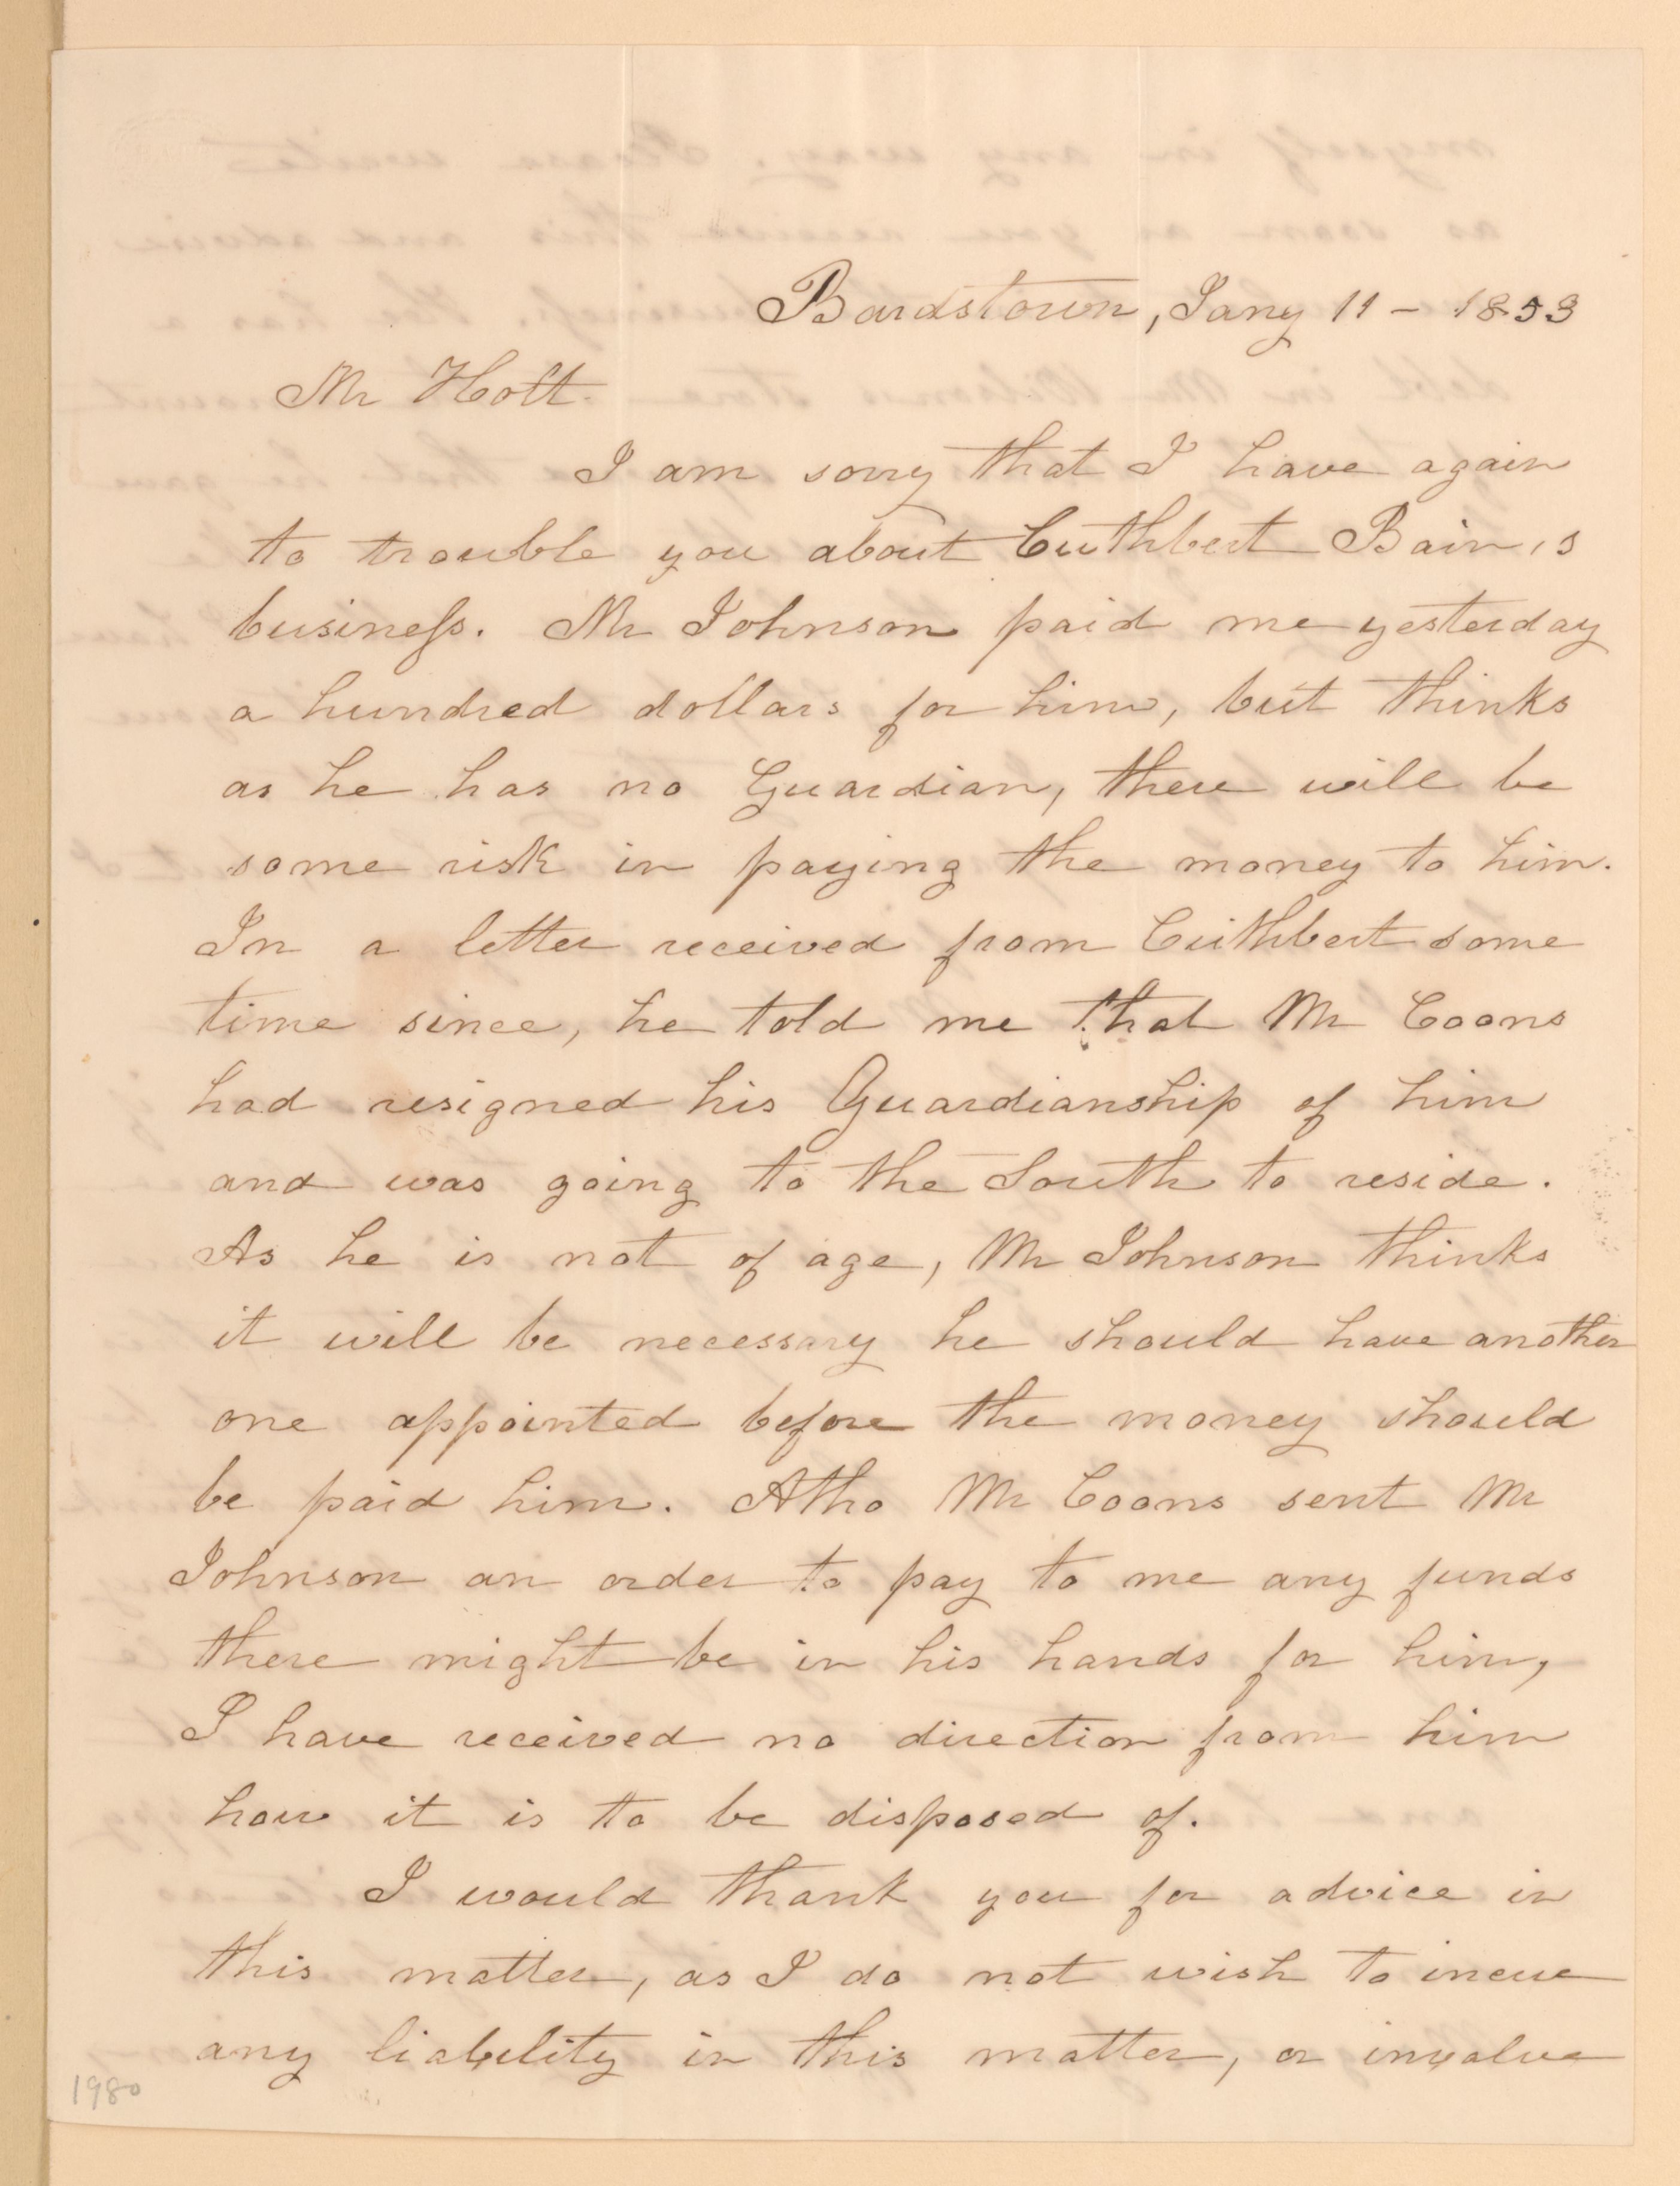 Bardstown, Jany 11 - 1853
Mr Holt.
I am sorry that I have again
to trouble you about Cuthbert Bain,s
business. Mr Johnson paid me yesterday
a hundred dollars for him, but thinks
as he has no Guardian, there will be
some risk in paying the money to him.
In a letter received from Cuthbert some
time since, he told me that Mr Coons
had resigned his Guardianship of him
and was going to the South to reside.
As he is not of age, Mr Johnson thinks
it will be necessary he should have another
one appointed before the money should
be paid him. Altho Mr Coons sent Mr
Johnson an order to pay to me any funds
there might be in his hands for him,
I have received no direction from him
how it is to be disposed of.
I would thank you for advice in
this matter, as I do not wish to incur
any liability in this matter, or involve
1980